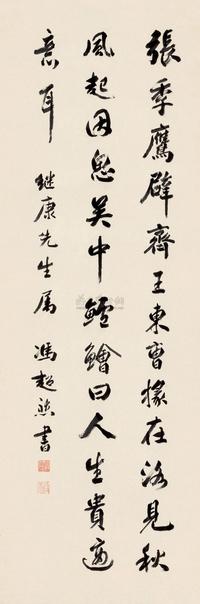 張季鷹辟齊王東曹掾在洛見秋
風起因思吳中鱸鱠曰人生貴適
意耳 继康先生属 馮超然書